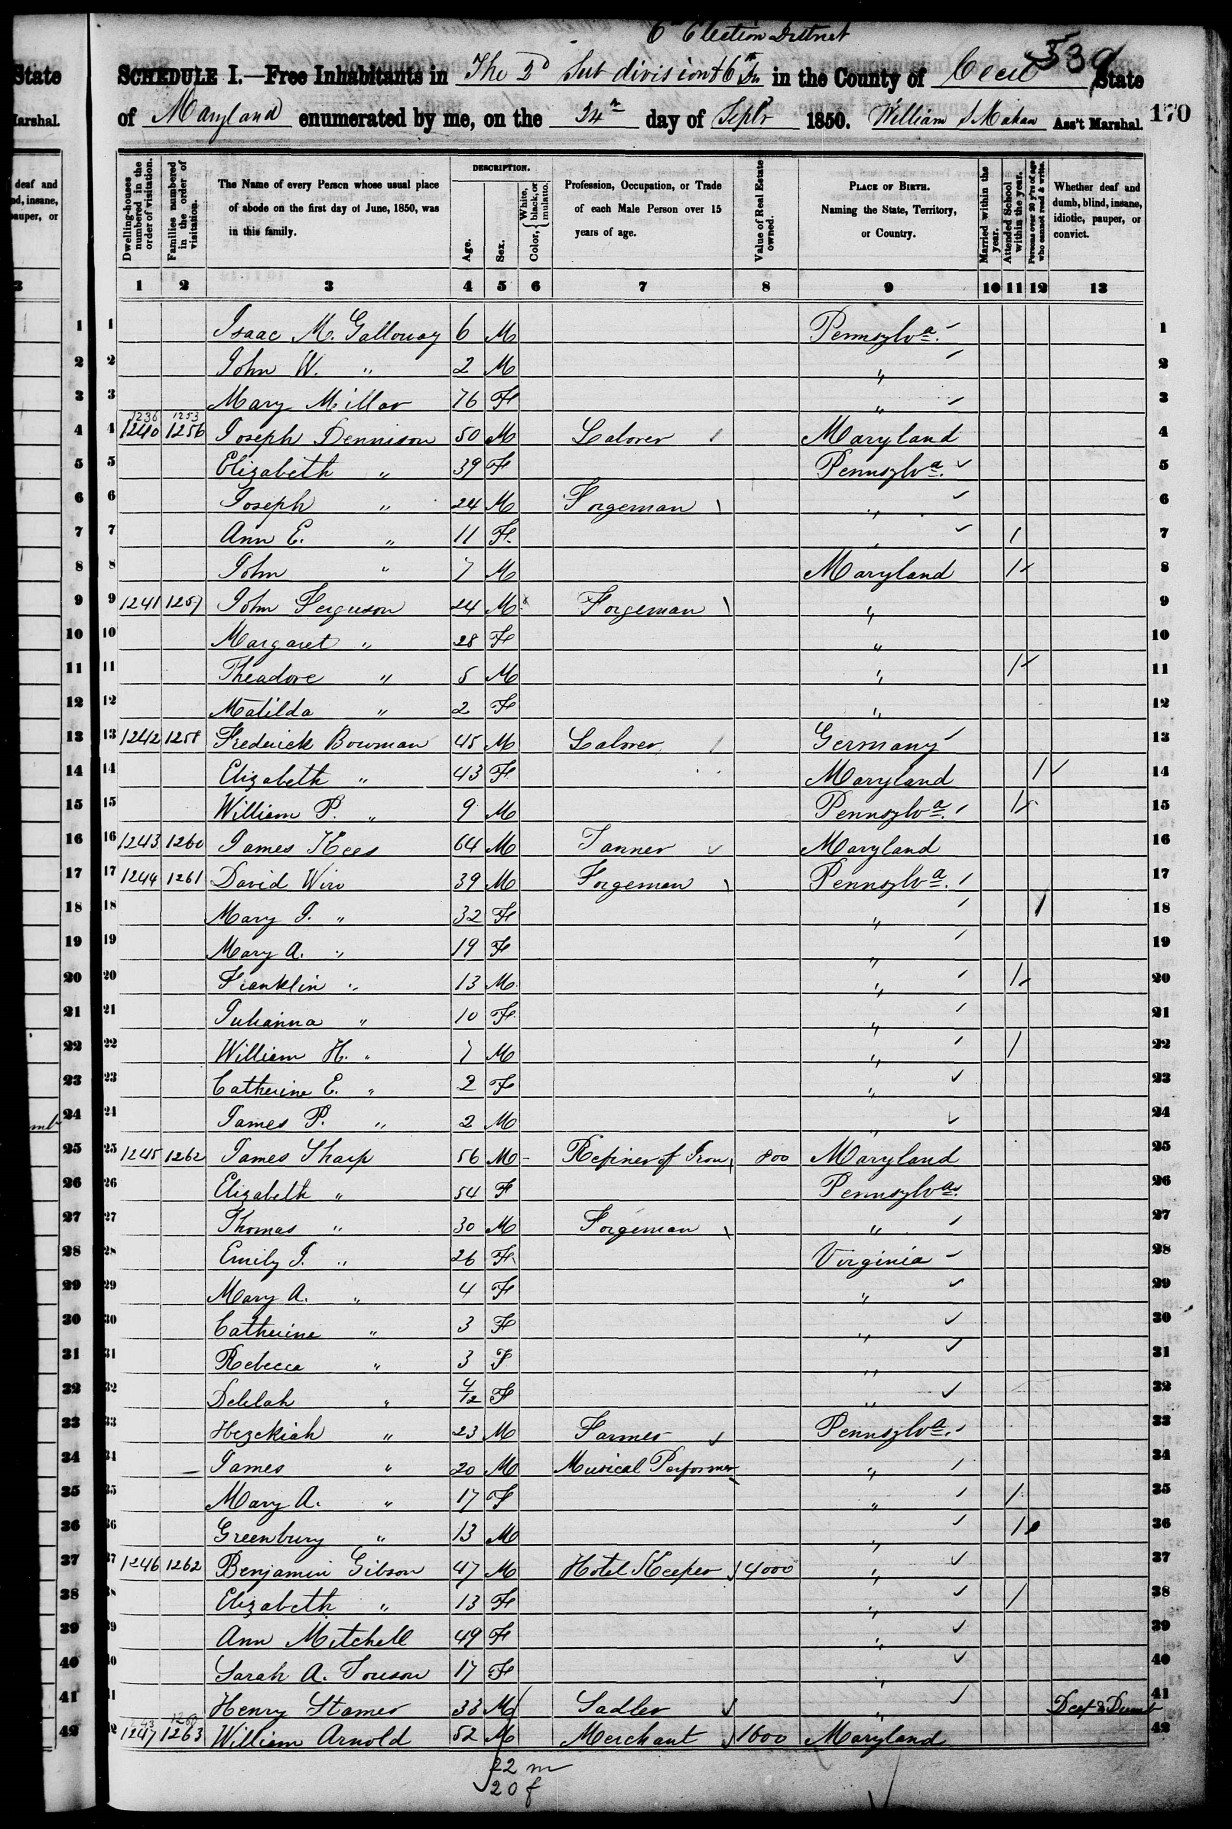 6th Election District
539
SCHEDULE I.—Free Inhabitants in The 2d Sub division of 6th in the County of Cecil State
of Maryland enumerated by me, on the 24th day of Septr 1850. William Ass't Marshal.
170
State
Marshal.
DESCRIPTION.
Dwelling-houses numbered in the order of visitation.
Families numbered in the order of visitation.
The Name of every Person whose usual place of abode on the first day of June, 1850, was in this family.
Age.
Sex.
Color, { White, black, or mulatto.
Profession, Occupation, or Trade of each Male Person over 15 years of age.
Value of Real Estate owned.
PLACE OF BIRTH. Naming the State, Territory, or Country.
Married within the year.
Attended School within the year.
Persons over 20 y'rs of age who cannot read & write.
Whether deaf and dumb, blind, insane, idiotic, pauper, or convict.
1 2 3 4 5 6 7 8 9 10 11 12 13
1 Isaac M. Galloway 6 M Pennsylva. 1
2 John W. " 2 M " 2
3 Mary Millar 76 F " 3
1236 1253
4 1240 1256 Joseph Dennison 50 M Laborer Maryland 4
5 Elizabeth " 39 F Pennsylva. 5
6 Joseph " 24 M Forgeman " 6
7 Ann E. " 11 F " / 7
8 John " 7 M Maryland / 8
9 1241 1257 John Ferguson 24 M Forgeman " 9
10 Margaret " 28 F " 10
11 Theadore " 5 M " / 11
12 Matilda " 2 F " 12
13 1242 1258 Frederick Bowman 45 M Laborer Germany 13
14 Elizabeth " 43 F Maryland / 14
15 William P. " 9 M Pennsylva. / 15
16 1243 1260 James Kees 64 M Tanner Maryland 16
17 1244 1261 David Wiro 39 M Forgeman Pennsylva. 17
18 Mary J. " 32 F " / 18
19 Mary A. " 19 F " 19
20 Franklin " 13 M " / 20
21 Julianna " 10 F " 21
22 William H. " 7 M " / 22
23 Catherine E. " 2 F " 23
24 James P. " 2 M " 24
25 1245 1262 James Sharp 56 M Refiner of Iron 800 Maryland 25
26 Elizabeth " 54 F Pennsylva. 26
27 Thomas " 30 M Forgeman " 27
28 Emily J. " 26 F Virginia 28
29 Mary A. " 4 F " 29
30 Catherine " 3 F " 30
31 Rebecca " 3 F " 31
32 Delilah " 4/12 F " 32
33 Hezekiah " 23 M Farmer Pennsylva. 33
34 James " 20 M Musical Performer " 34
35 Mary A. " 17 F " / 35
36 Greenbury " 13 M " / 36
37 1246 1262 Benjamin Gibson 47 M Hotel Keeper 4000 " 37
38 Elizabeth " 13 F " / 38
39 Ann Mitchell 49 F " 39
40 Sarah A. Touson 17 F " 40
41 Henry Stamer 33 M Sadler " Deaf & Dumb 41
42 1247 1263 William Arnold 52 M Merchant 1600 Maryland 42
22 m
20 f